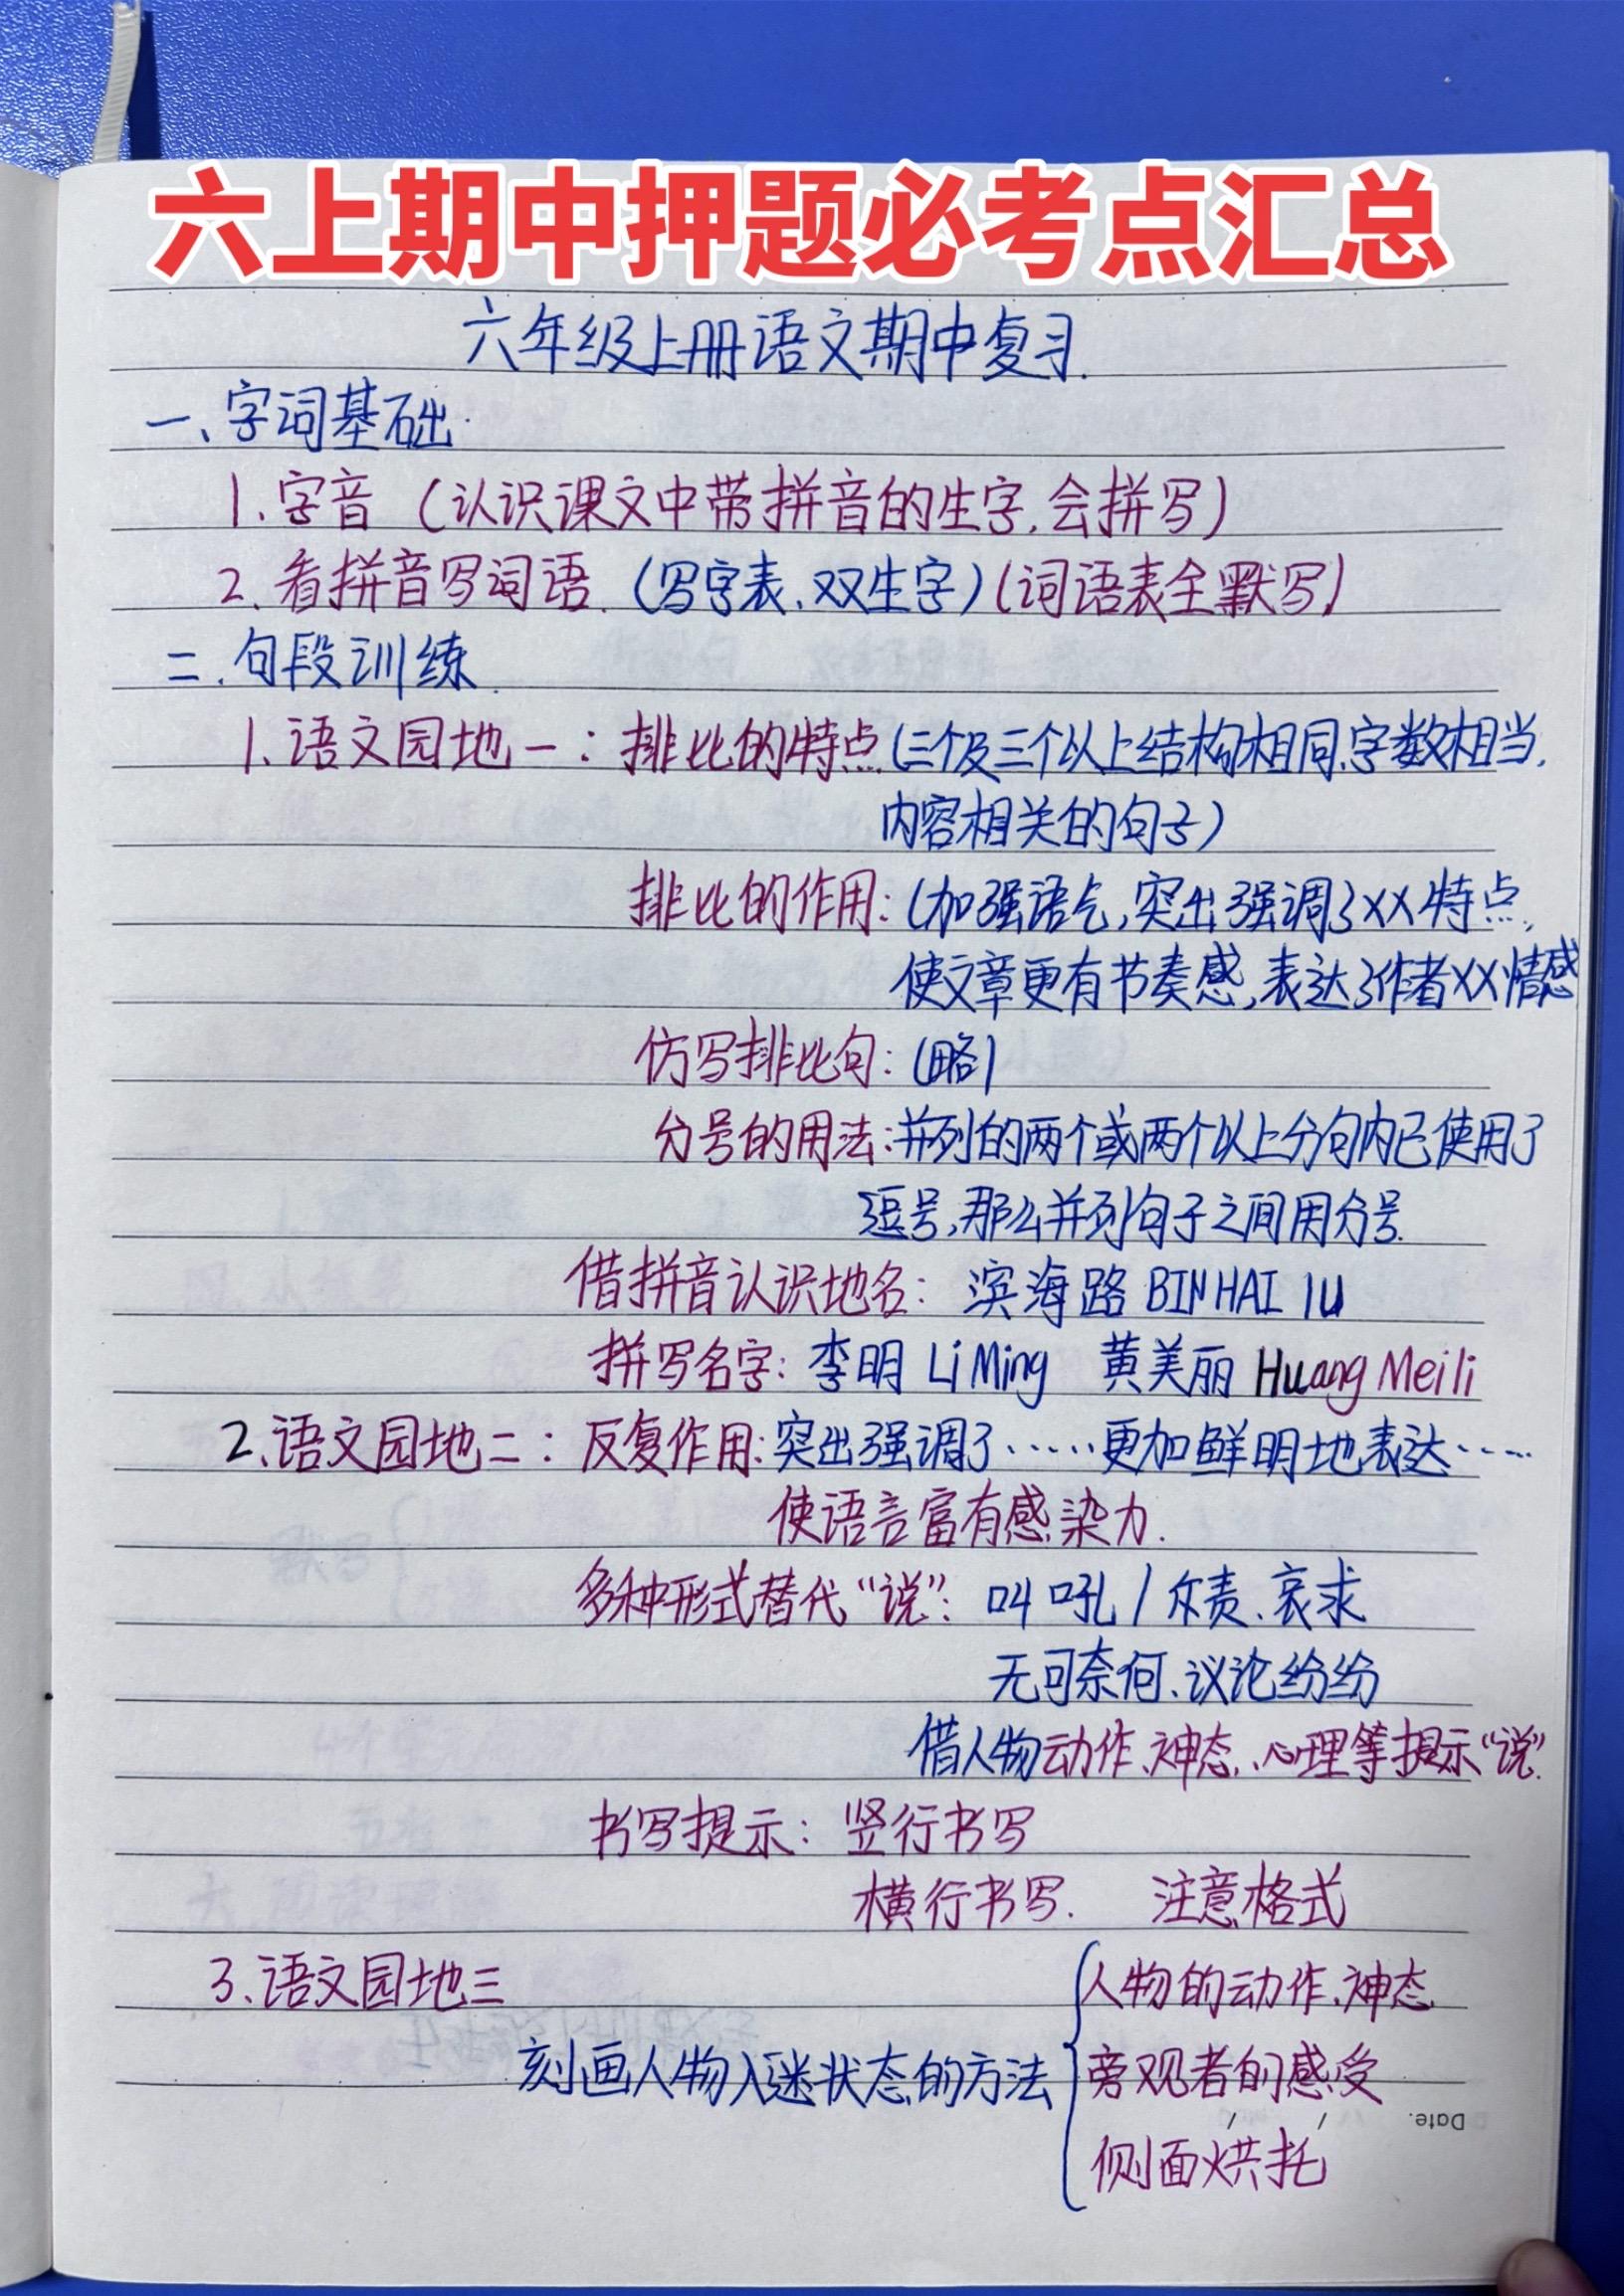 六上期中押题必考点汇总
六年级上册语文期中复习.
一、字词基础.
1.字音（认识课文中带拼音的生字,会拼写）
2.看拼音写词语.（写字表、双生字）（词语表全默写）
二.句段训练.
1.语文园地一：排比的特点(三个及三个以上结构相同、字数相当,
内容相关的句子)
排比的作用:(加强语气,突出强调了XX特点,
使文章更有节奏感,表达了作者XX情感
仿写排比句:(略)
分号的用法:并列的两个或两个以上分句内已使用了
逗号,那么并列句子之间用分号.
借拼音认识地名: 滨海路 BINHAI lu
拼写名字: 李明 Li Ming 黄美丽 Huang Meili
2.语文园地二: 反复作用:突出强调了……更加鲜明地表达……
使语言富有感染力.
多种形式替代“说”: 叫 吼 / 斥责、哀求
无可奈何、议论纷纷
借人物动作、神态、心理等提示“说”.
书写提示: 竖行书写
横行书写. 注意格式
3.语文园地三
人物的动作、神态
刻画人物入迷状态的方法
旁观者的感受
侧面烘托
Date.